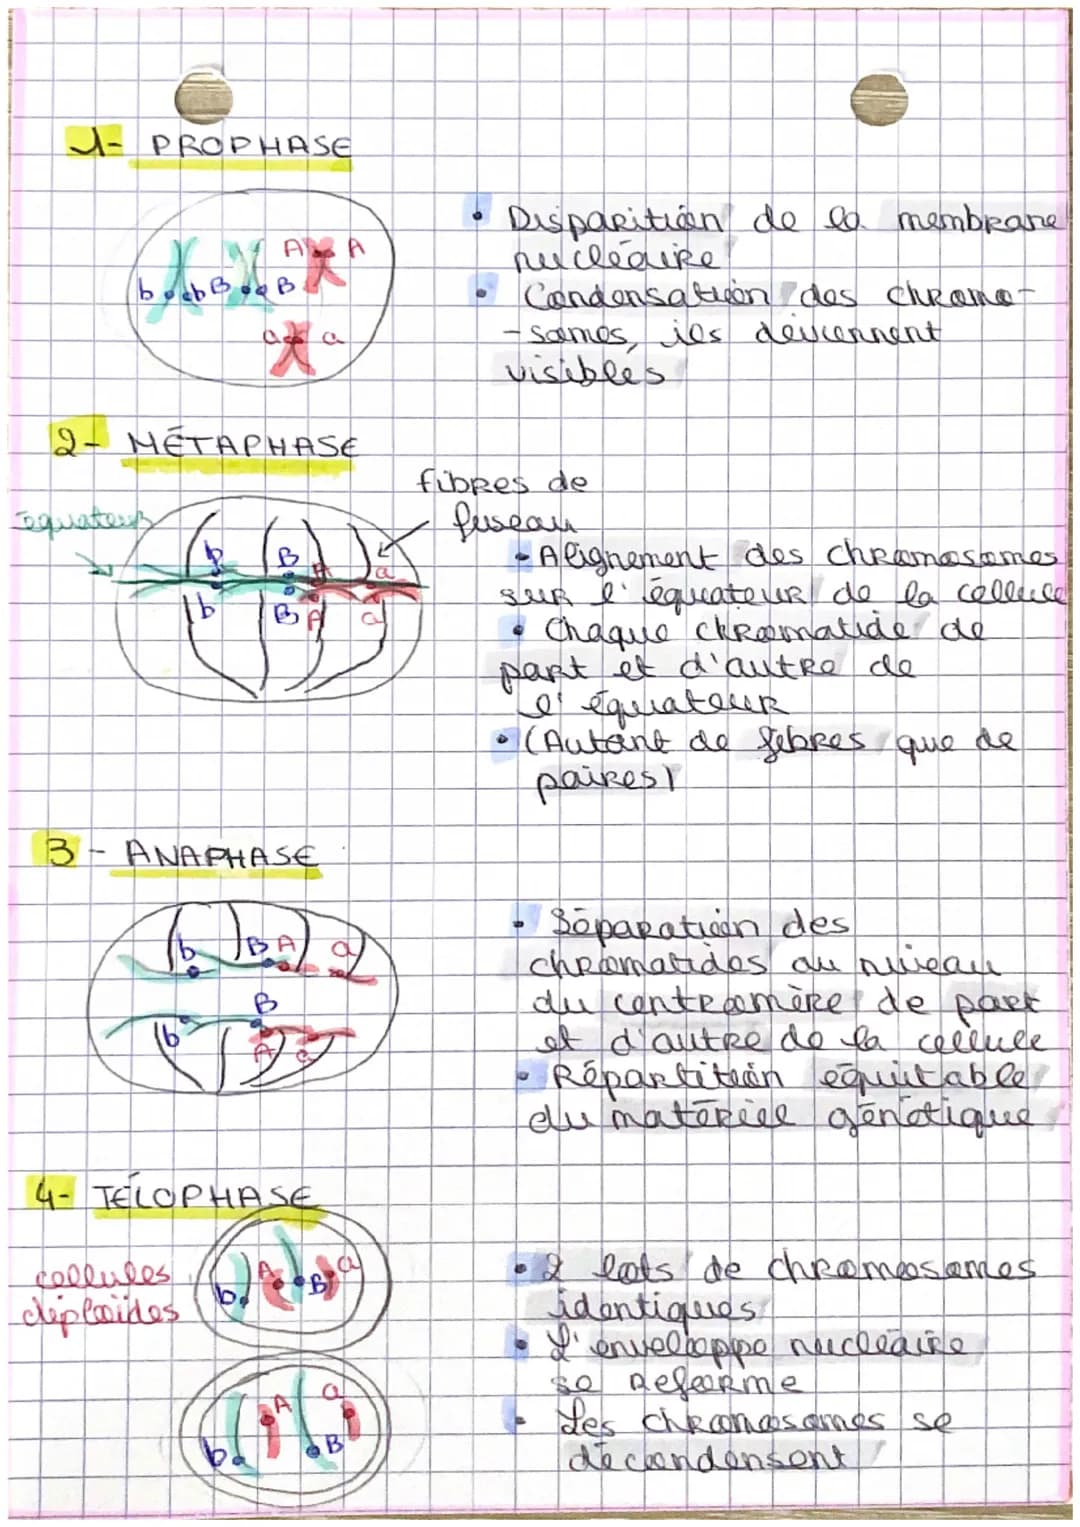 1- PROPHASE
A A
b b B B
a a
• Disparition de la membrane
nucléaire
• Condensation des chromo-
-somes, ils deviennent
visibles
2- MÉTAPHASE
fibres de
fuseau
équateur
b B A a
b B A a
• Alignement des chromosomes
sur l'équateur de la cellule
• Chaque chromatide de
part et d'autre de
l'équateur
• (Autant de fibres que de
paires)
3- ANAPHASE
b B A a
B
b A a
• Séparation des
chromatides au niveau
du centromère de part
et d'autre de la cellule
• Répartition équitable
du matériel génétique
4- TÉLOPHASE
cellules
diploïdes
b A B a
b A B a
• 2 lots de chromosomes
identiques
• L'enveloppe nucléaire
se reforme
• Les chromosomes se
décondensent